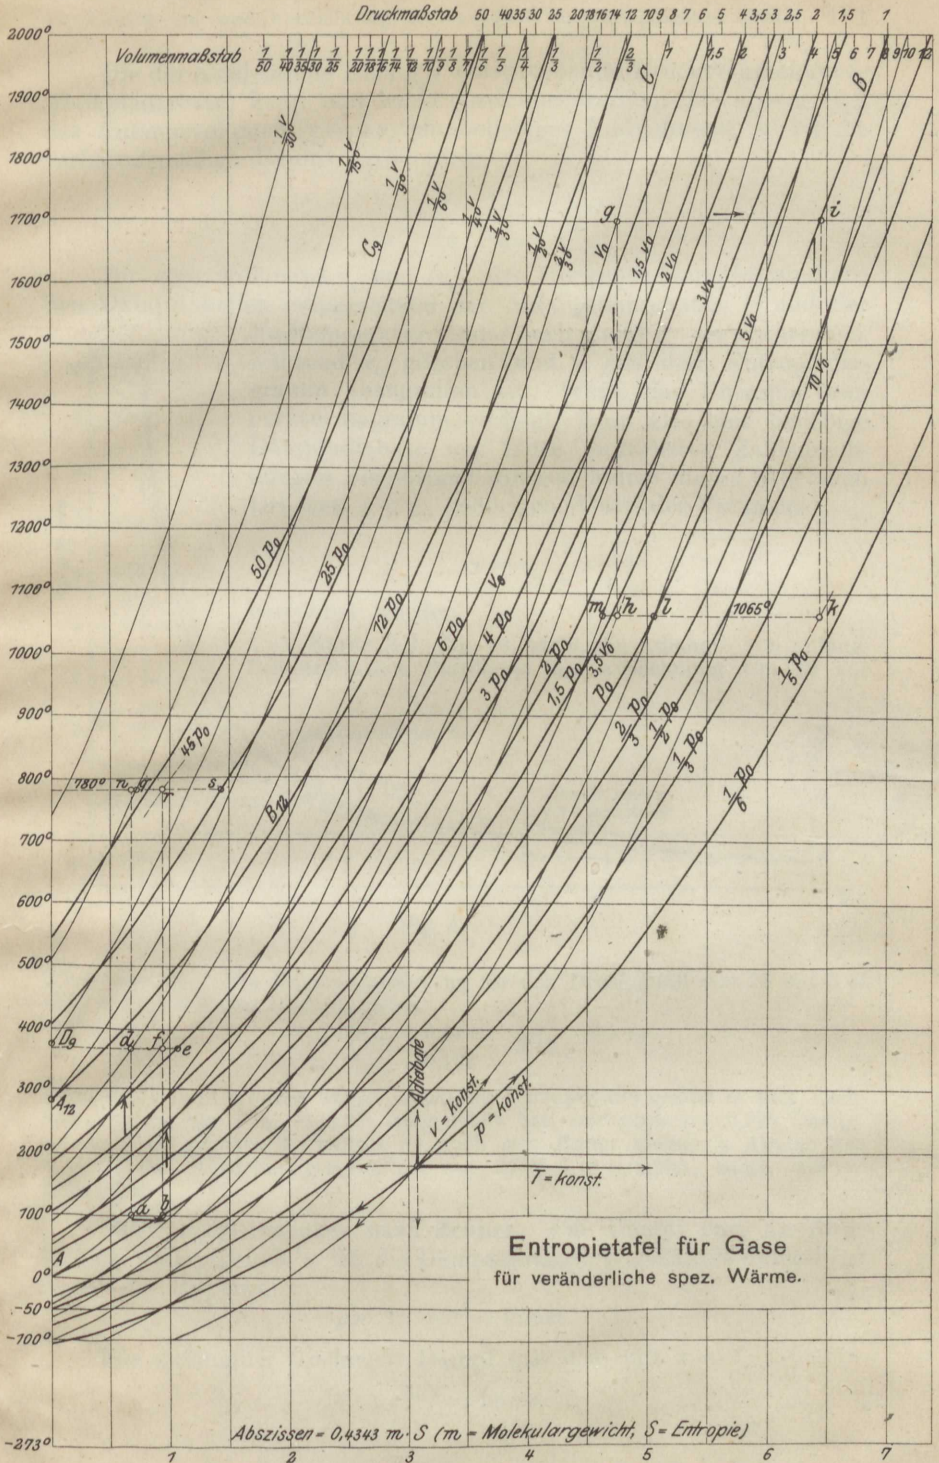 Druckmaßstab 50 40 35 30 25 20 18 16 14 12 10 9 8 7 6 5 4 3,5 3 2,5 2 1,5 1
Volumenmaßstab 1/50 1/40 1/35 1/30 1/25 1/20 1/18 1/16 1/14 1/12 1/10 1/9 1/8 1/7 1/6 1/5 1/4 1/3 1/2 2/3 1 1,5 2 3 4 5 6 7 8 9 10 12
2000°
1900°
1800°
1700°
1600°
1500°
1400°
1300°
1200°
1100°
1000°
900°
800°
700°
600°
500°
400°
300°
200°
100°
0°
-50°
-100°
-273°
C
B
1/30 v
1/15 v
1/9 v
1/6 v
1/4 v
1/3 v
1/2 v
2/3 v
C9
v0
1,5 v0
2 v0
3 v0
5 v0
10 v0
g
i
50 p0
25 p0
12 p0
6 p0
v0
4 p0
3 p0
2 p0
1,5 p0
3,5 v0
p0
2/3 p0
1/2 p0
1/3 p0
1/5 p0
1/6 p0
m h l
1065°
k
45 p0
780° n q r s
B12
D9 d f e
A12
a b
A
Adiabate
v = konst.
p = konst.
T = konst.
Entropietafel für Gase
für veränderliche spez. Wärme.
Abszissen = 0,4343 m · S (m = Molekulargewicht, S = Entropie)
1 2 3 4 5 6 7